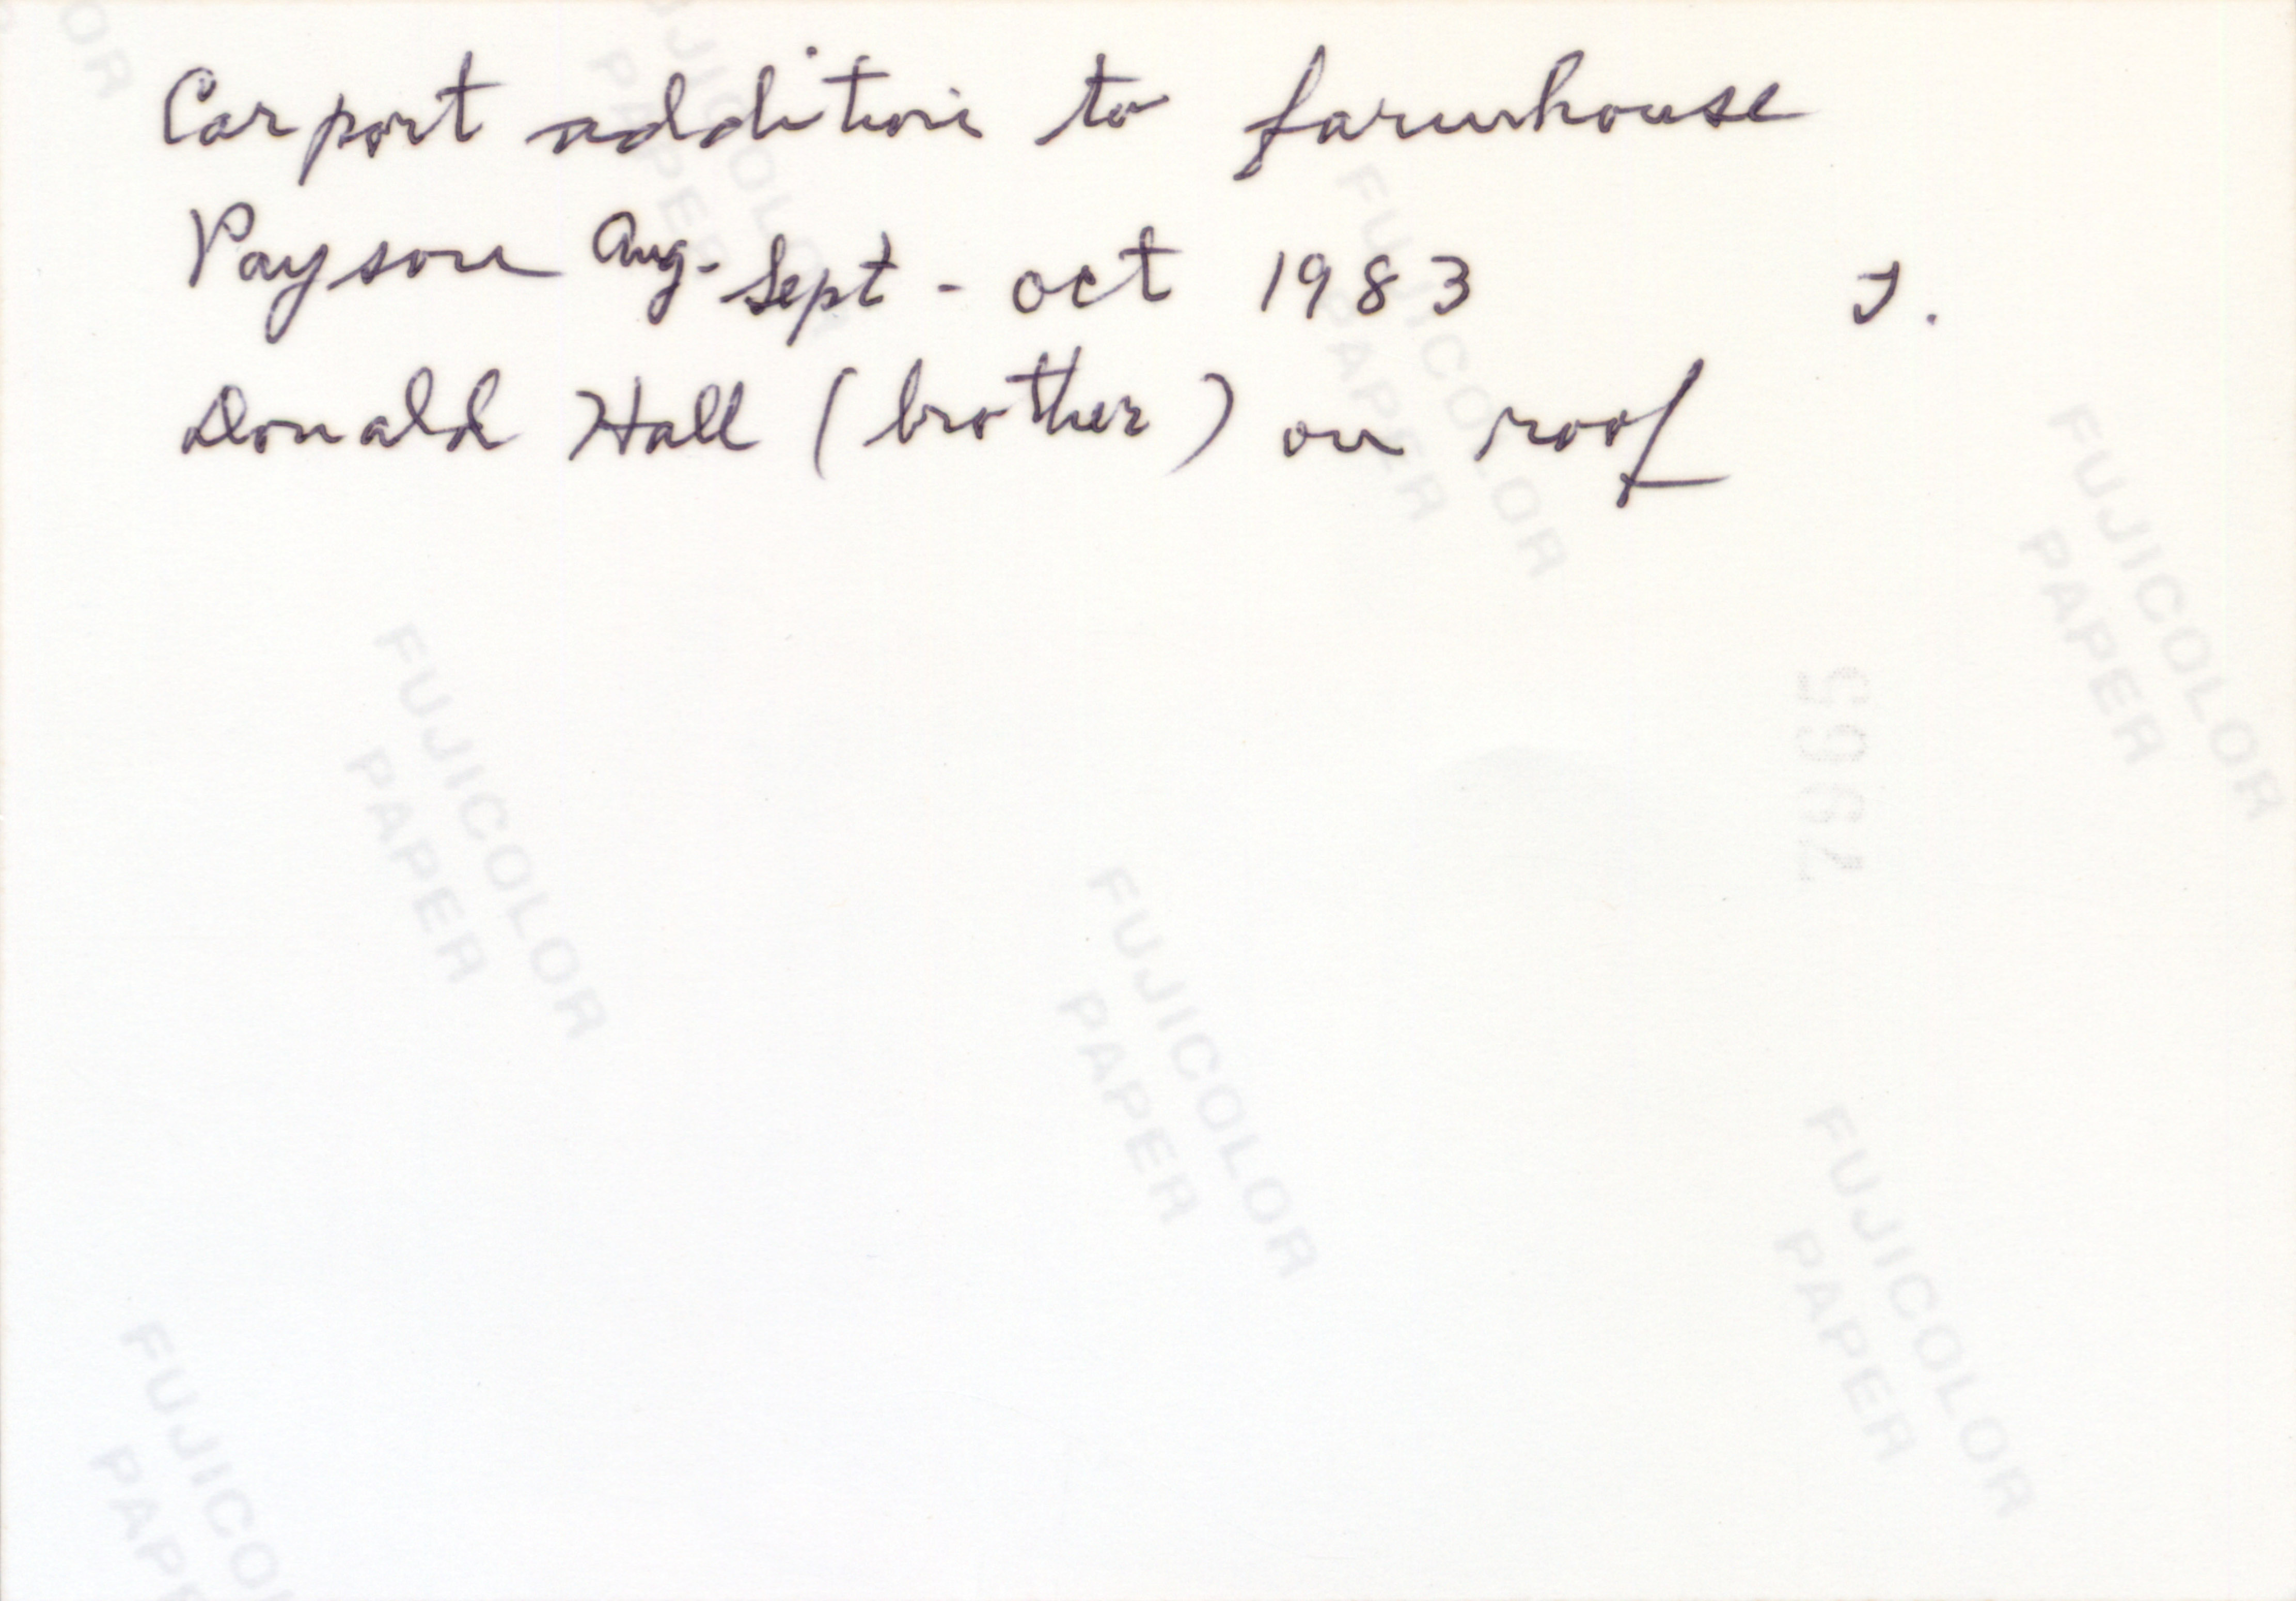 Carport addition to farmhouse
Payson Aug - Sept - oct 1983 J.
Donald Hall (brother) on roof
FUJICOLOR
PAPER
FUJICOLOR
PAPER
FUJICOLOR
PAPER
FUJICOLOR
PAPER
FUJICOLOR
PAPER
FUJICOLOR
PAPER